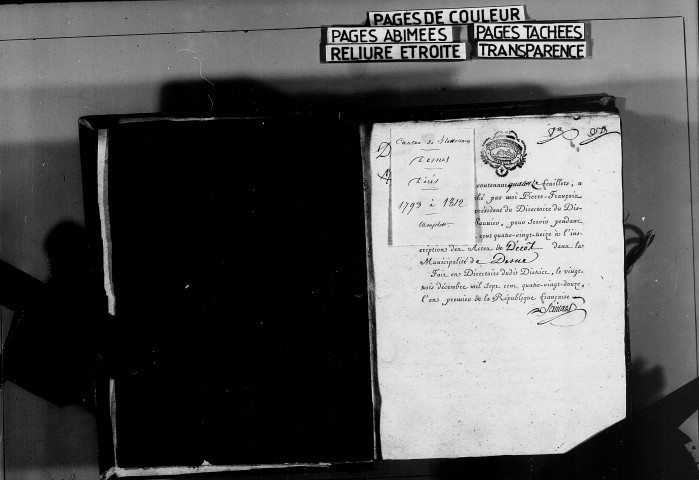 PAGES DE COULEUR
PAGES ABIMEES PAGES TACHEES
RELIURE ETROITE TRANSPARENCE
Canton de
Desnes
Décès
1793 à 1812
Complet
contenant quarante feuillets, a
par moi Pierre-François
président du Directoire du Dis-
Saunier, pour servir pendant
cent quatre-vingt-treize à l'ins-
cription des Actes de Décès dans la
Municipalité de Desne
Fait en Directoire dudit District, le vingt-
trois décembre mil sept cent quatre-vingt-douze,
l'an premier de la République française